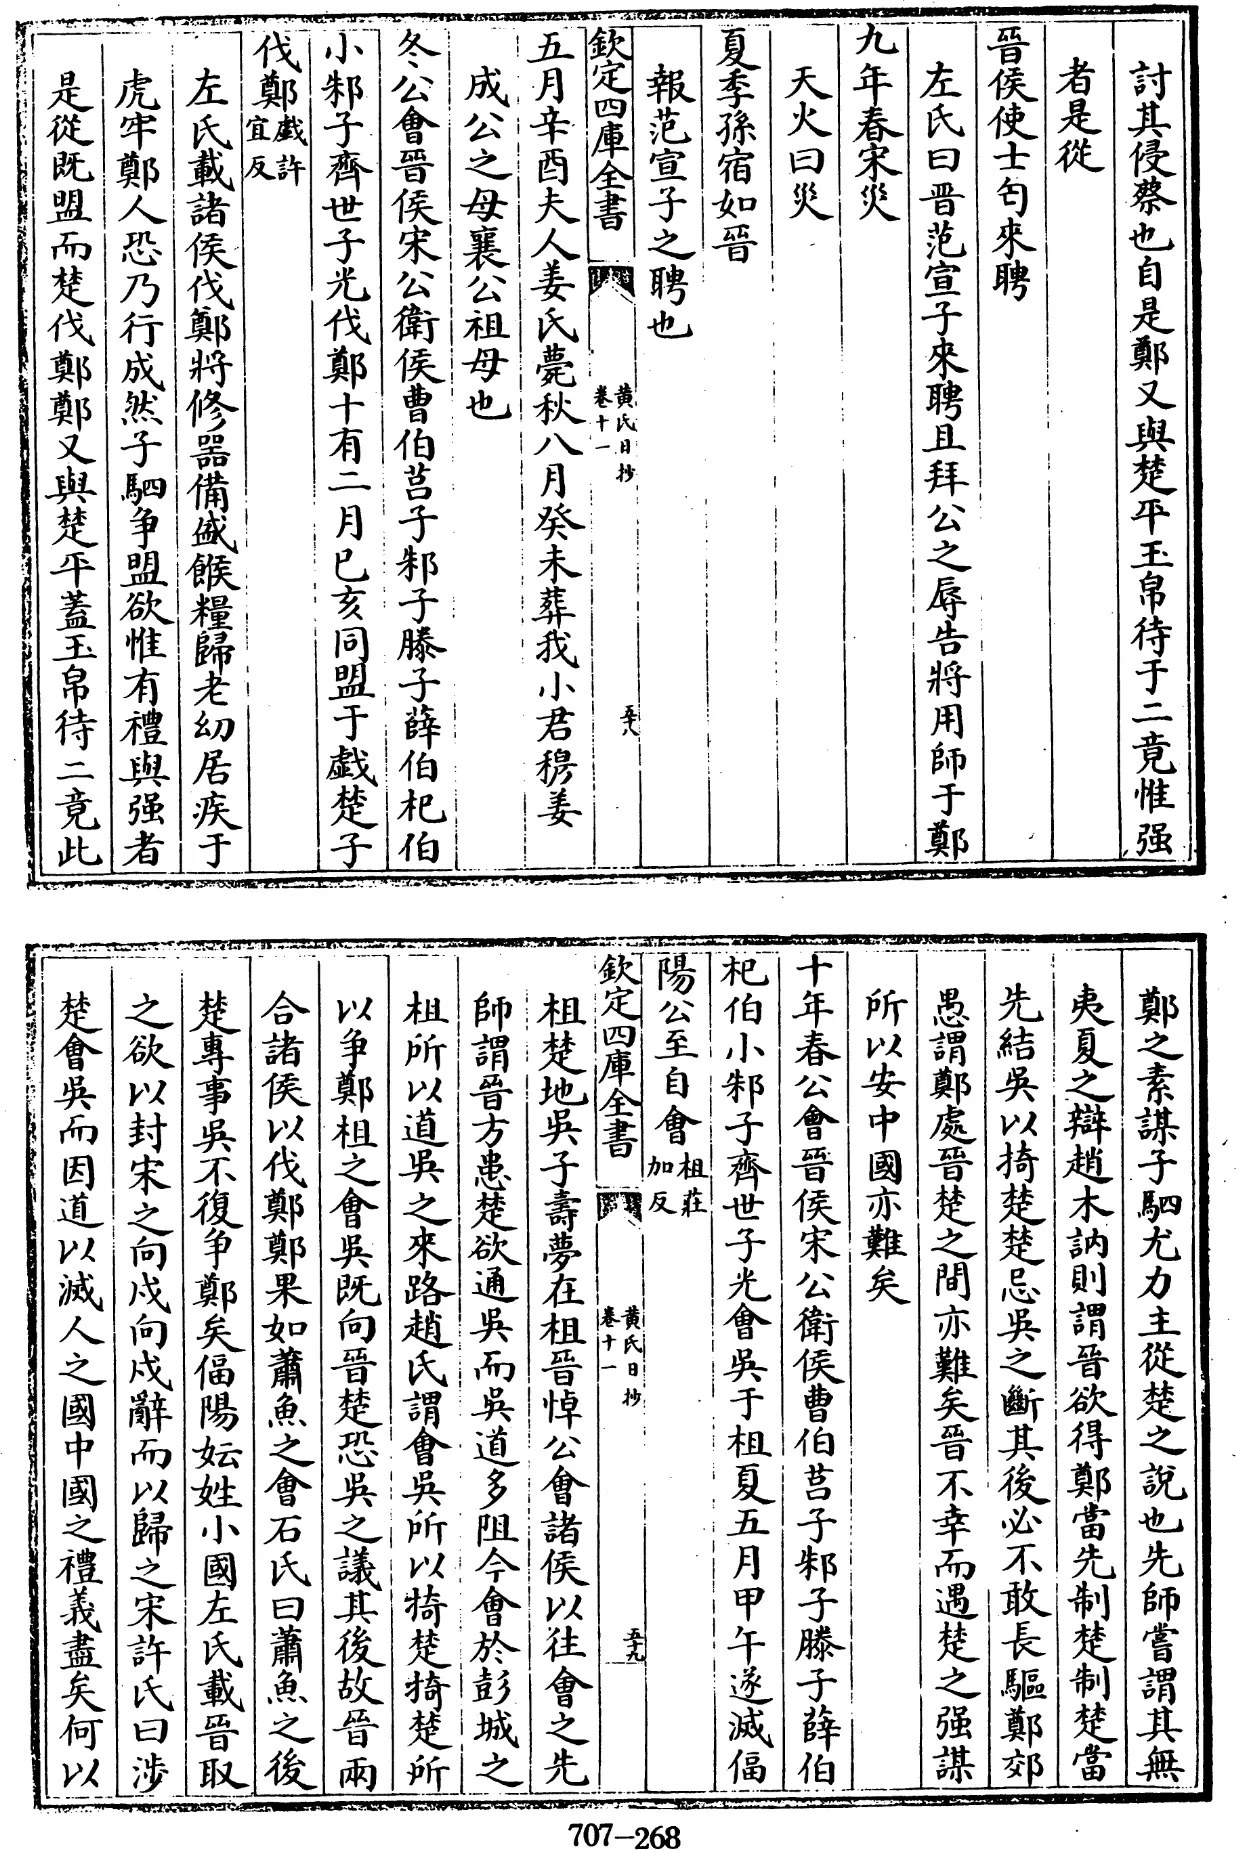 討其侵蔡也自是鄭又與楚平玉帛待于二竟惟强
者是從
晉侯使士匄來聘
左氏曰晋范宣子來聘且拜公之辱告將用師于鄭
九年春宋災
天火曰災
夏季孫宿如晉
報范宣子之聘也
欽定四庫全書
黄氏日抄
卷十一
五十八
五月辛酉夫人姜氏薨秋八月癸未葬我小君穆姜
成公之母襄公祖母也
冬公會晉侯宋公衛侯曹伯莒子邾子滕子薛伯杞伯
小邾子齊世子光伐鄭十有二月已亥同盟于戲楚子
伐鄭戲許宜反
左氏載諸侯伐鄭將修器備盛餱糧歸老幼居疾于
虎牢鄭人恐乃行成然子駟争盟欲惟有禮與强者
是從既盟而楚伐鄭鄭又與楚平蓋玉帛待二竟此
鄭之素謀子駟尤力主從楚之說也先師嘗謂其無
夷夏之辯趙木訥則謂晉欲得鄭當先制楚制楚當
先結吳以掎楚楚忌吳之斷其後必不敢長驅鄭郊
愚謂鄭處晉楚之間亦難矣晉不幸而遇楚之强謀
所以安中國亦難矣
十年春公會晉侯宋公衛侯曹伯莒子邾子滕子薛伯
杞伯小邾子齊世子光會吳于柤夏五月甲午遂滅偪
陽公至自會柤莊加反
欽定四庫全書
黄氏日抄
卷十一
五十九
柤楚地吳子壽夢在柤晉悼公會諸侯以往會之先
師謂晉方患楚欲通吳而吳道多阻今會於彭城之
柤所以道吳之來路趙氏謂會吳所以掎楚掎楚所
以争鄭柤之會吳既向晉楚恐吳之議其後故晉兩
合諸侯以伐鄭鄭果如蕭魚之會石氏曰蕭魚之後
楚專事吳不復争鄭矣偪陽妘姓小國左氏載晉取
之欲以封宋之向戍向戍辭而以歸之宋許氏曰渉
楚會吳而因道以滅人之國中國之禮義盡矣何以
707-268